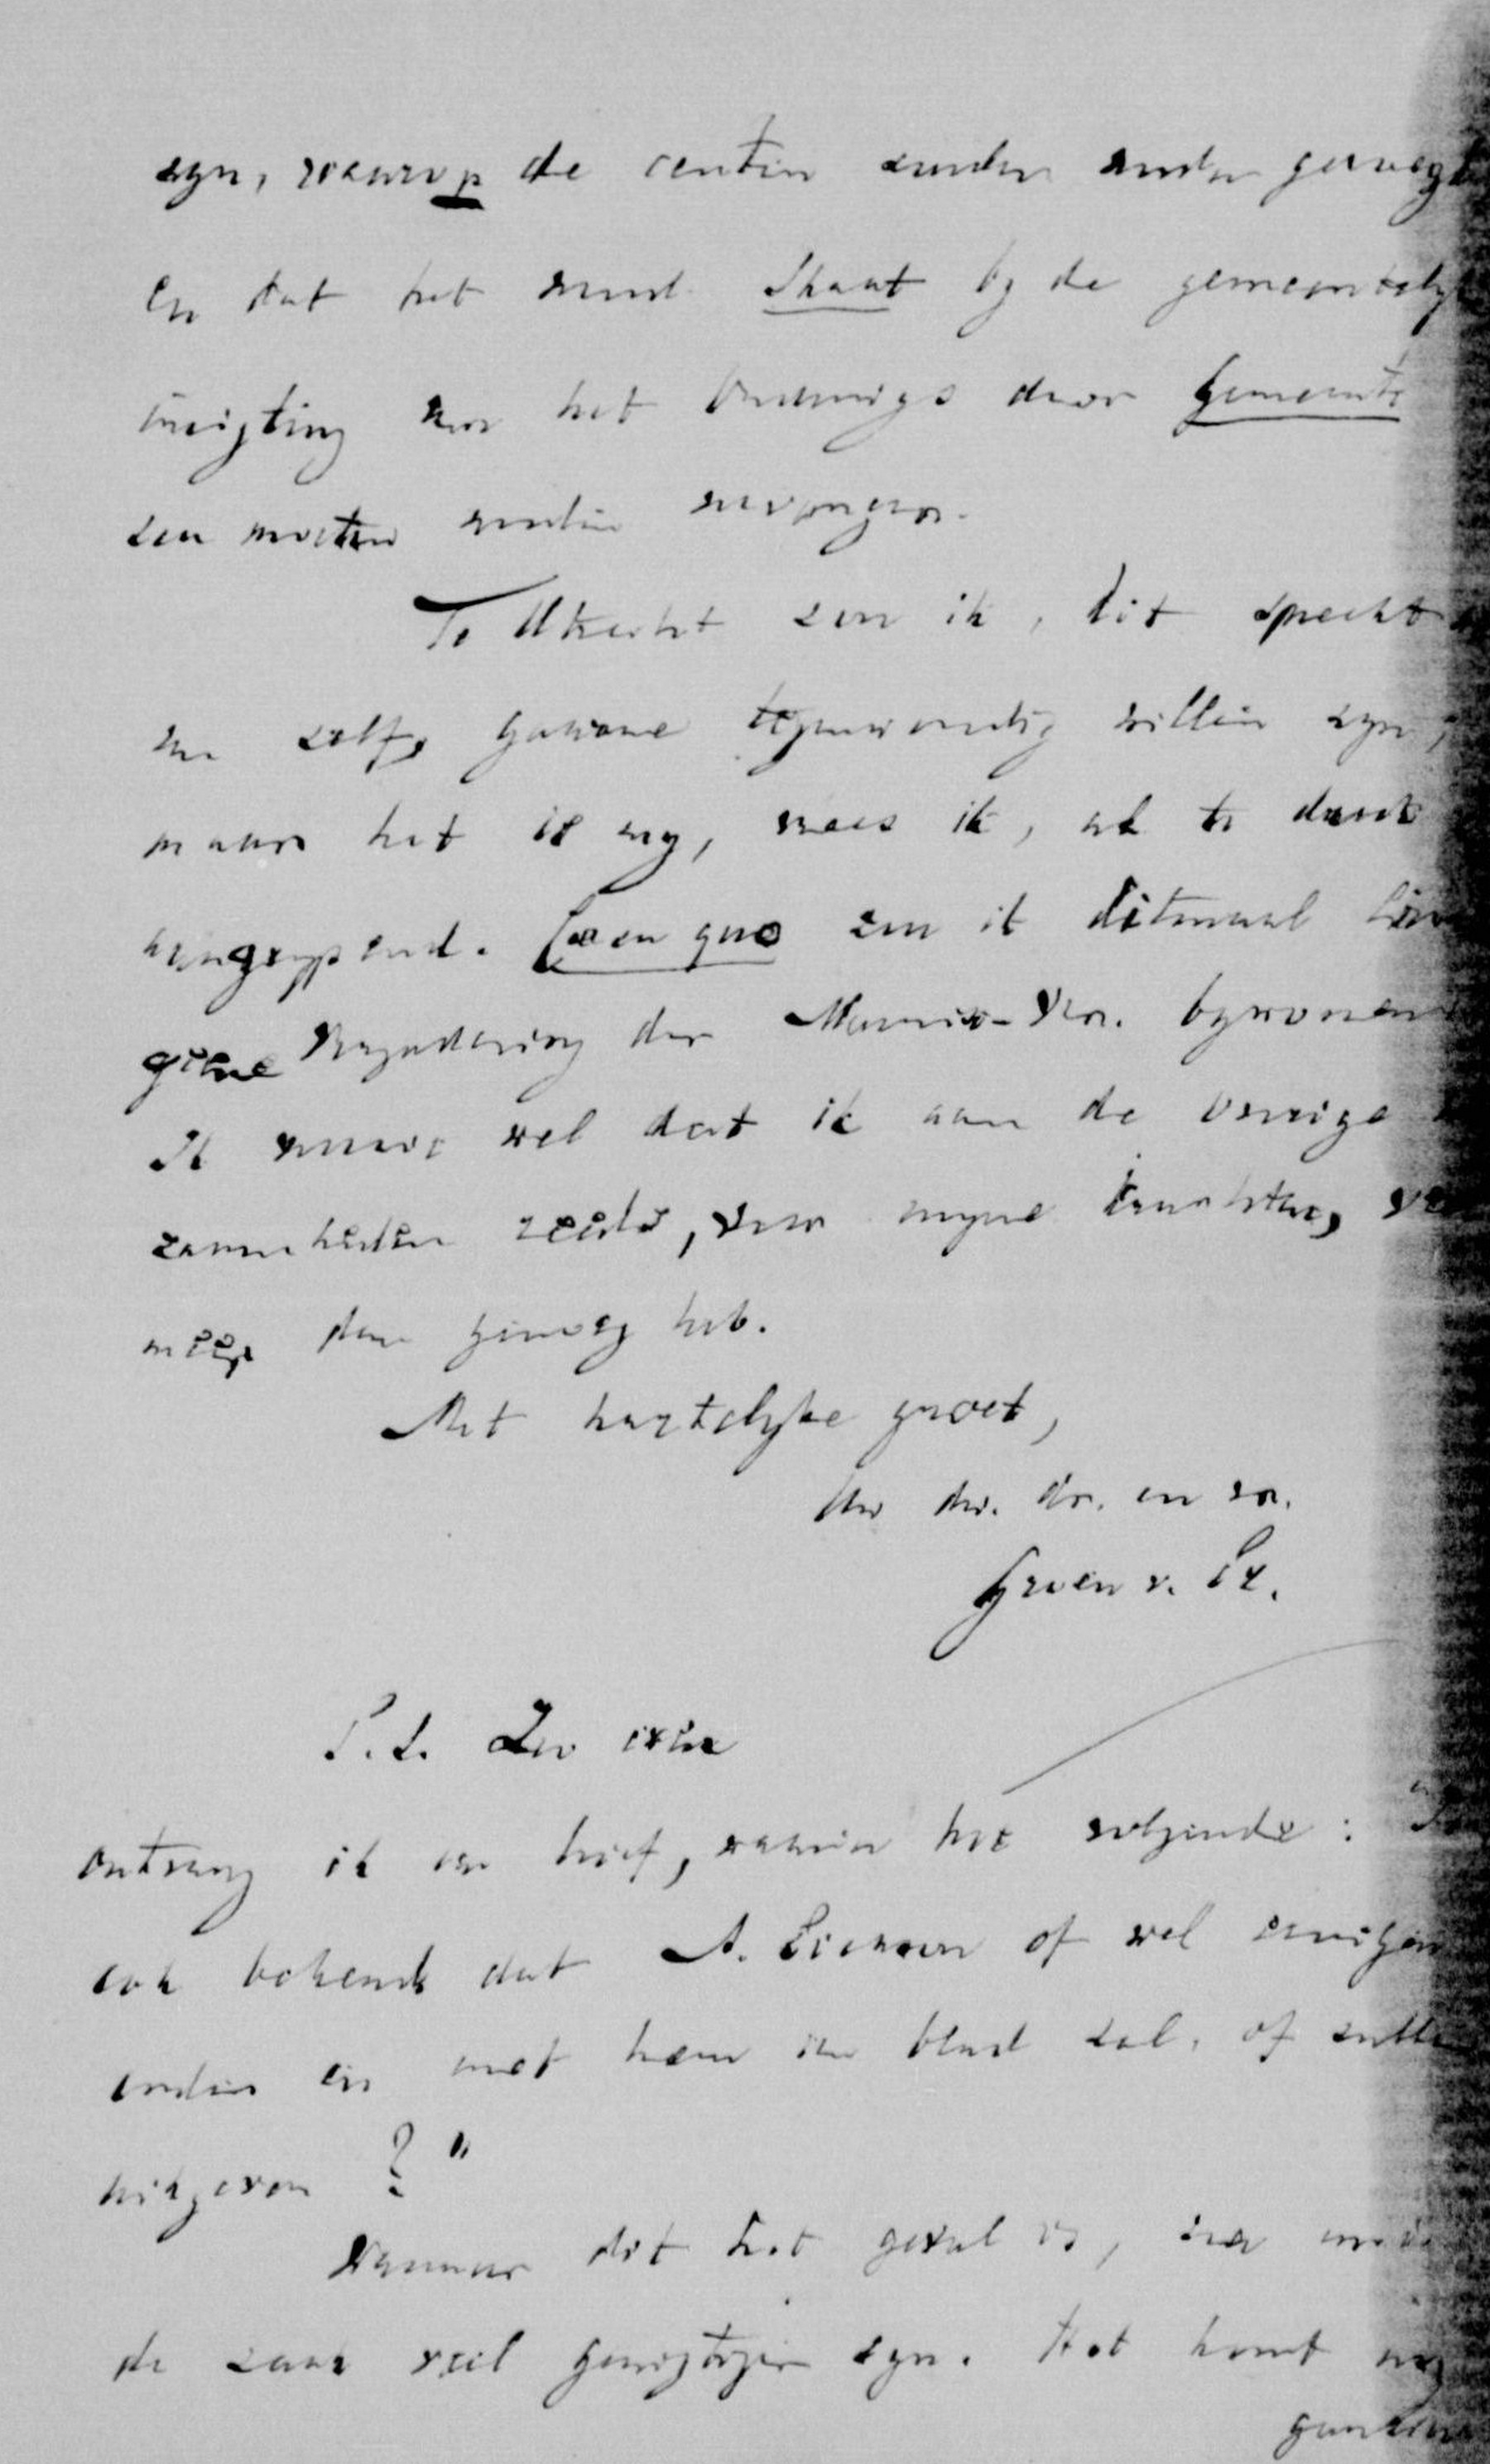 zyn, waarop de centen zonder ander gevolg
en dat het woord Staat by de gemeentely
inrigting van het Onderwijs door Gemeente
zou moeten worden vervangen.
Te Utrecht zou ik, dit spreekt
van zelf, gaarne tegenwoordig willen zyn,
maar het is my, vrees ik, al te
aangrypend. Coenquo zou ik ditmaal
geene Vergadering der Marnix-Ver. bywonen
Ik vrees wel dat ik aan de overige
zaamheden reeds, voor myne krachten,
meer dan genoeg heb.
Met hartelyke groet,
Uw dw. dr. en vr.
Groen v. Pr.
P.S. Zoo even
ontvang ik een brief, waarin het volgende:
ook bekend dat A. Pierson of wel eenigen
onder en met hem een blad zal, of zullen
uitgeven?"
Wanneer dit het geval is, zou
de zaak veel gewigtiger zyn. Het komt my